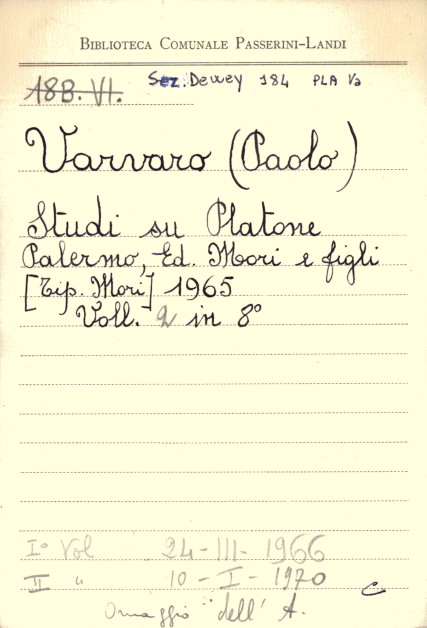 BIBLIOTECA COMUNALE PASSERINI-LANDI
18B. VI. Sez. Dewey 184 PLA Va
Varvaro (Paolo)
Studi su Platone
Palermo, Ed. Mori e figli
[Tip. Mori] 1965
Voll. 2 in 8°
I° Vol 24-III-1966
II " 10-I-1970 C
Omaggio dell'A.